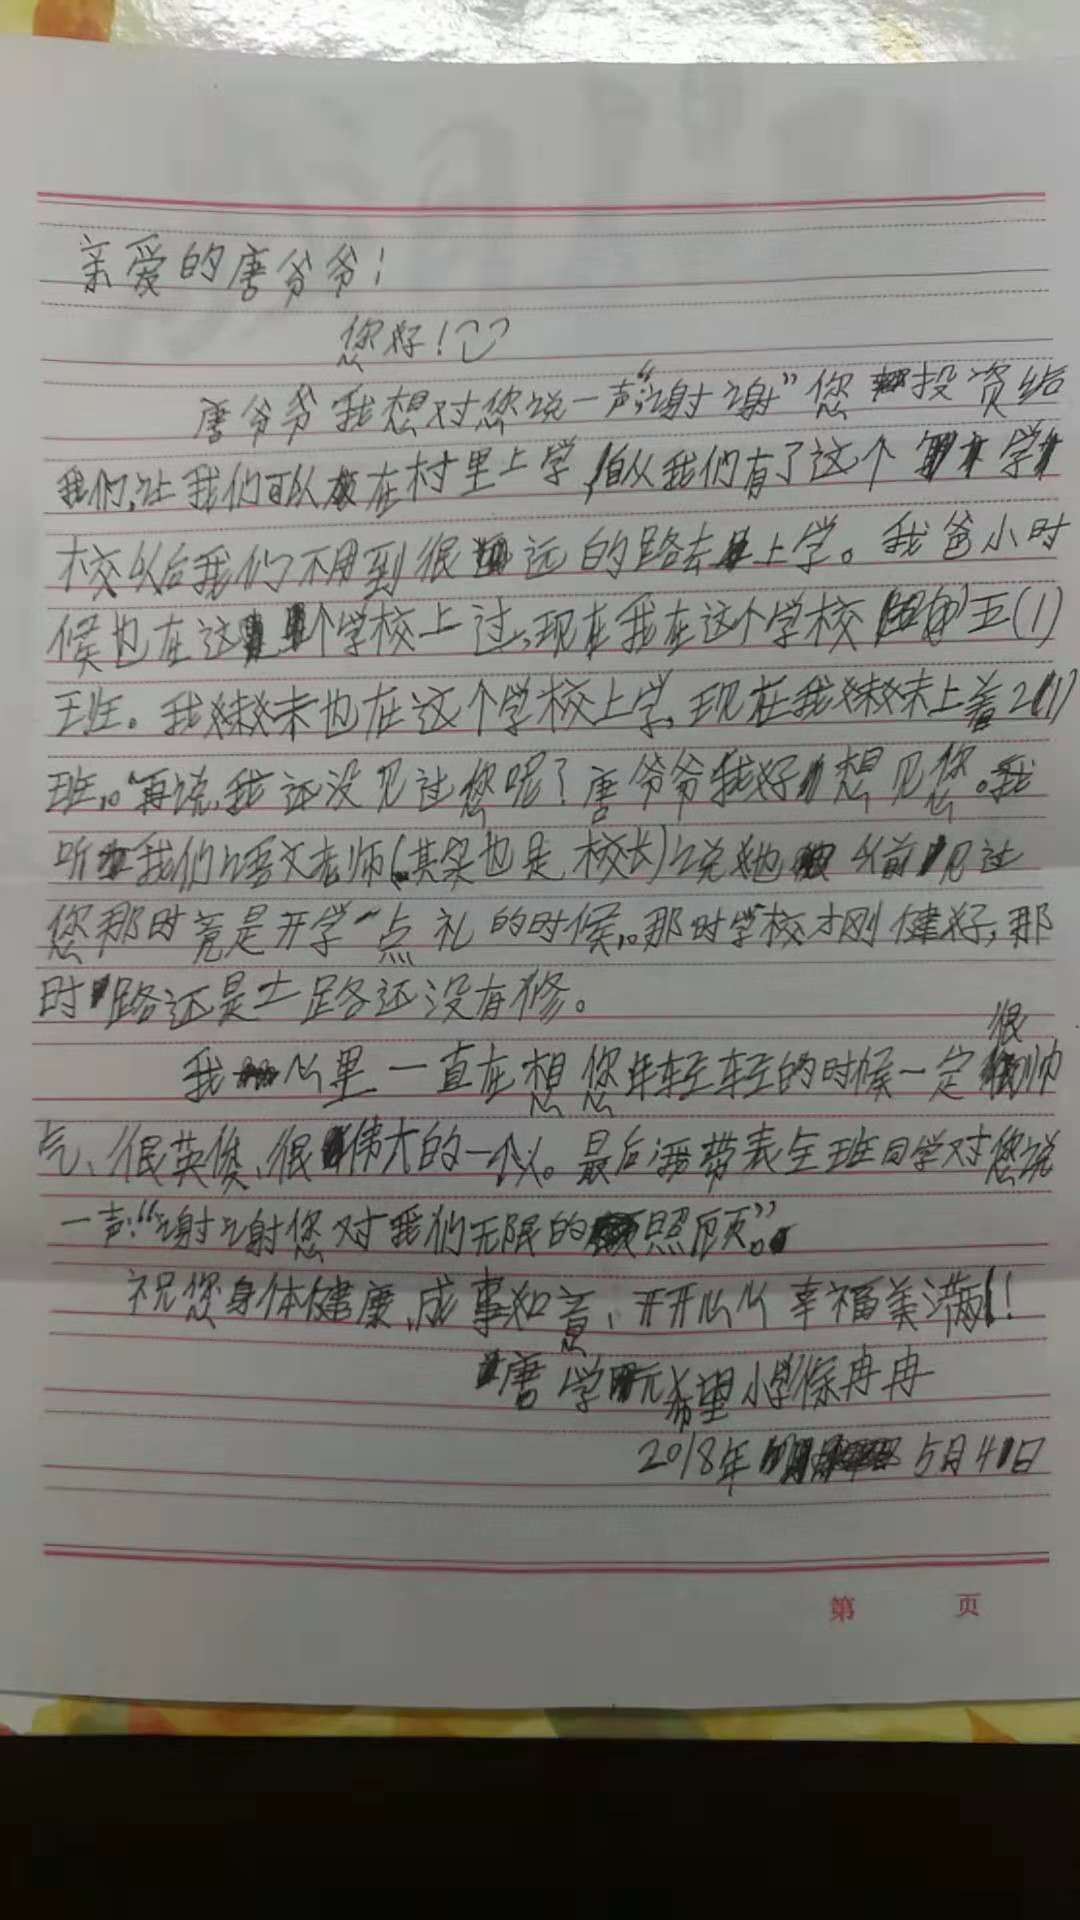 亲爱的唐爷爷！
您好！
唐爷爷我想对您说一声“谢谢”您投资给
我们，让我们可以在村里上学，自从我们有了这个学
校以后我们不用到很远的路去上学。我爸小时
候也在这个学校上过，现在我在这个学校五（1）
班。我妹妹也在这个学校上学，现在我妹妹上着2（1）
班。再说，我还没见过您呢？唐爷爷我好想见您。我
听我们语文老师（其实也是校长）说她以前见过
您那时竟是开学点礼的时候。那时学校才刚健好，那
时路还是土路还没有修。
我心里一直在想您年轻轻的时候一定很帅
气、很英俊、很伟大的一个人。最后我带表全班同学对您说
一声：“谢谢您对我们无限的照顾”。
祝您身体健康，成事如意，开开心心幸福美满！
唐学元希望小学 冉冉
2018年5月4日
第 页